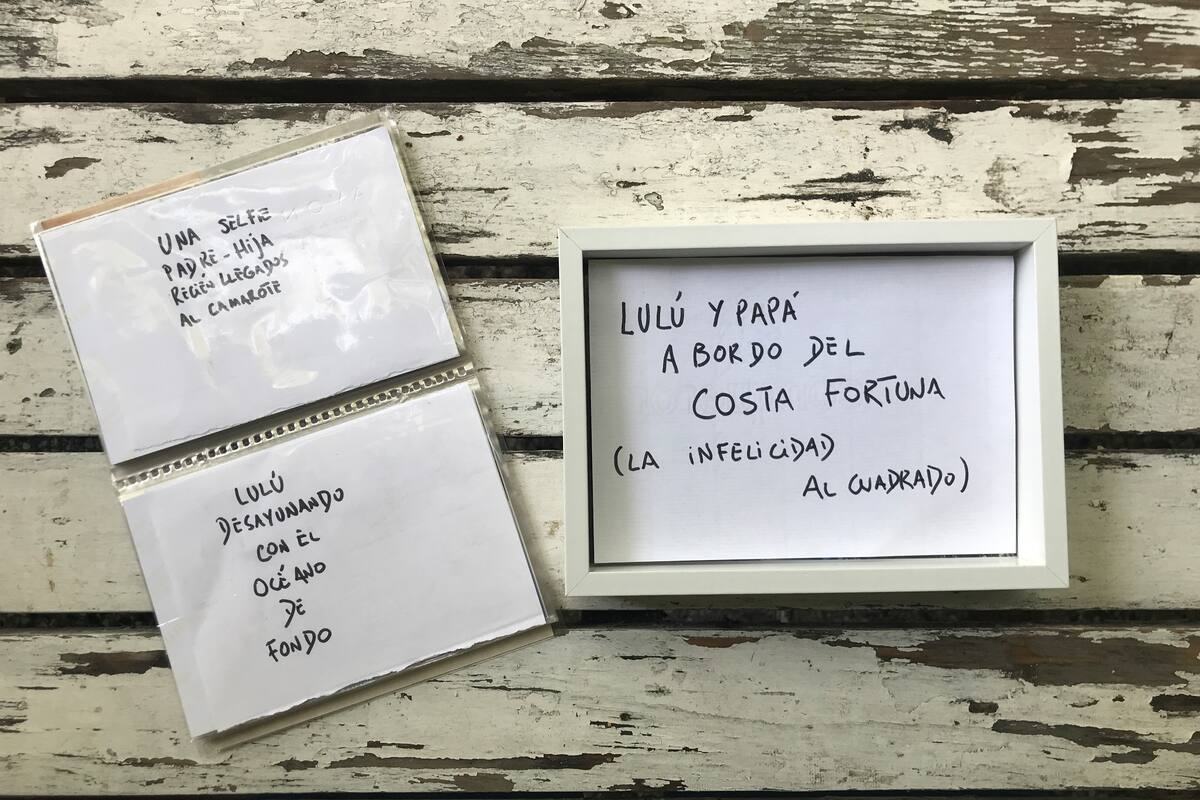 UNA SELFIE
PADRE-HIJA
RECIÉN LLEGADOS
AL CAMAROTE
LULÚ
DESAYUNANDO
CON EL
OCÉANO
DE
FONDO
LULÚ Y PAPÁ
A BORDO DEL
COSTA FORTUNA
(LA INFELICIDAD
AL CUADRADO)